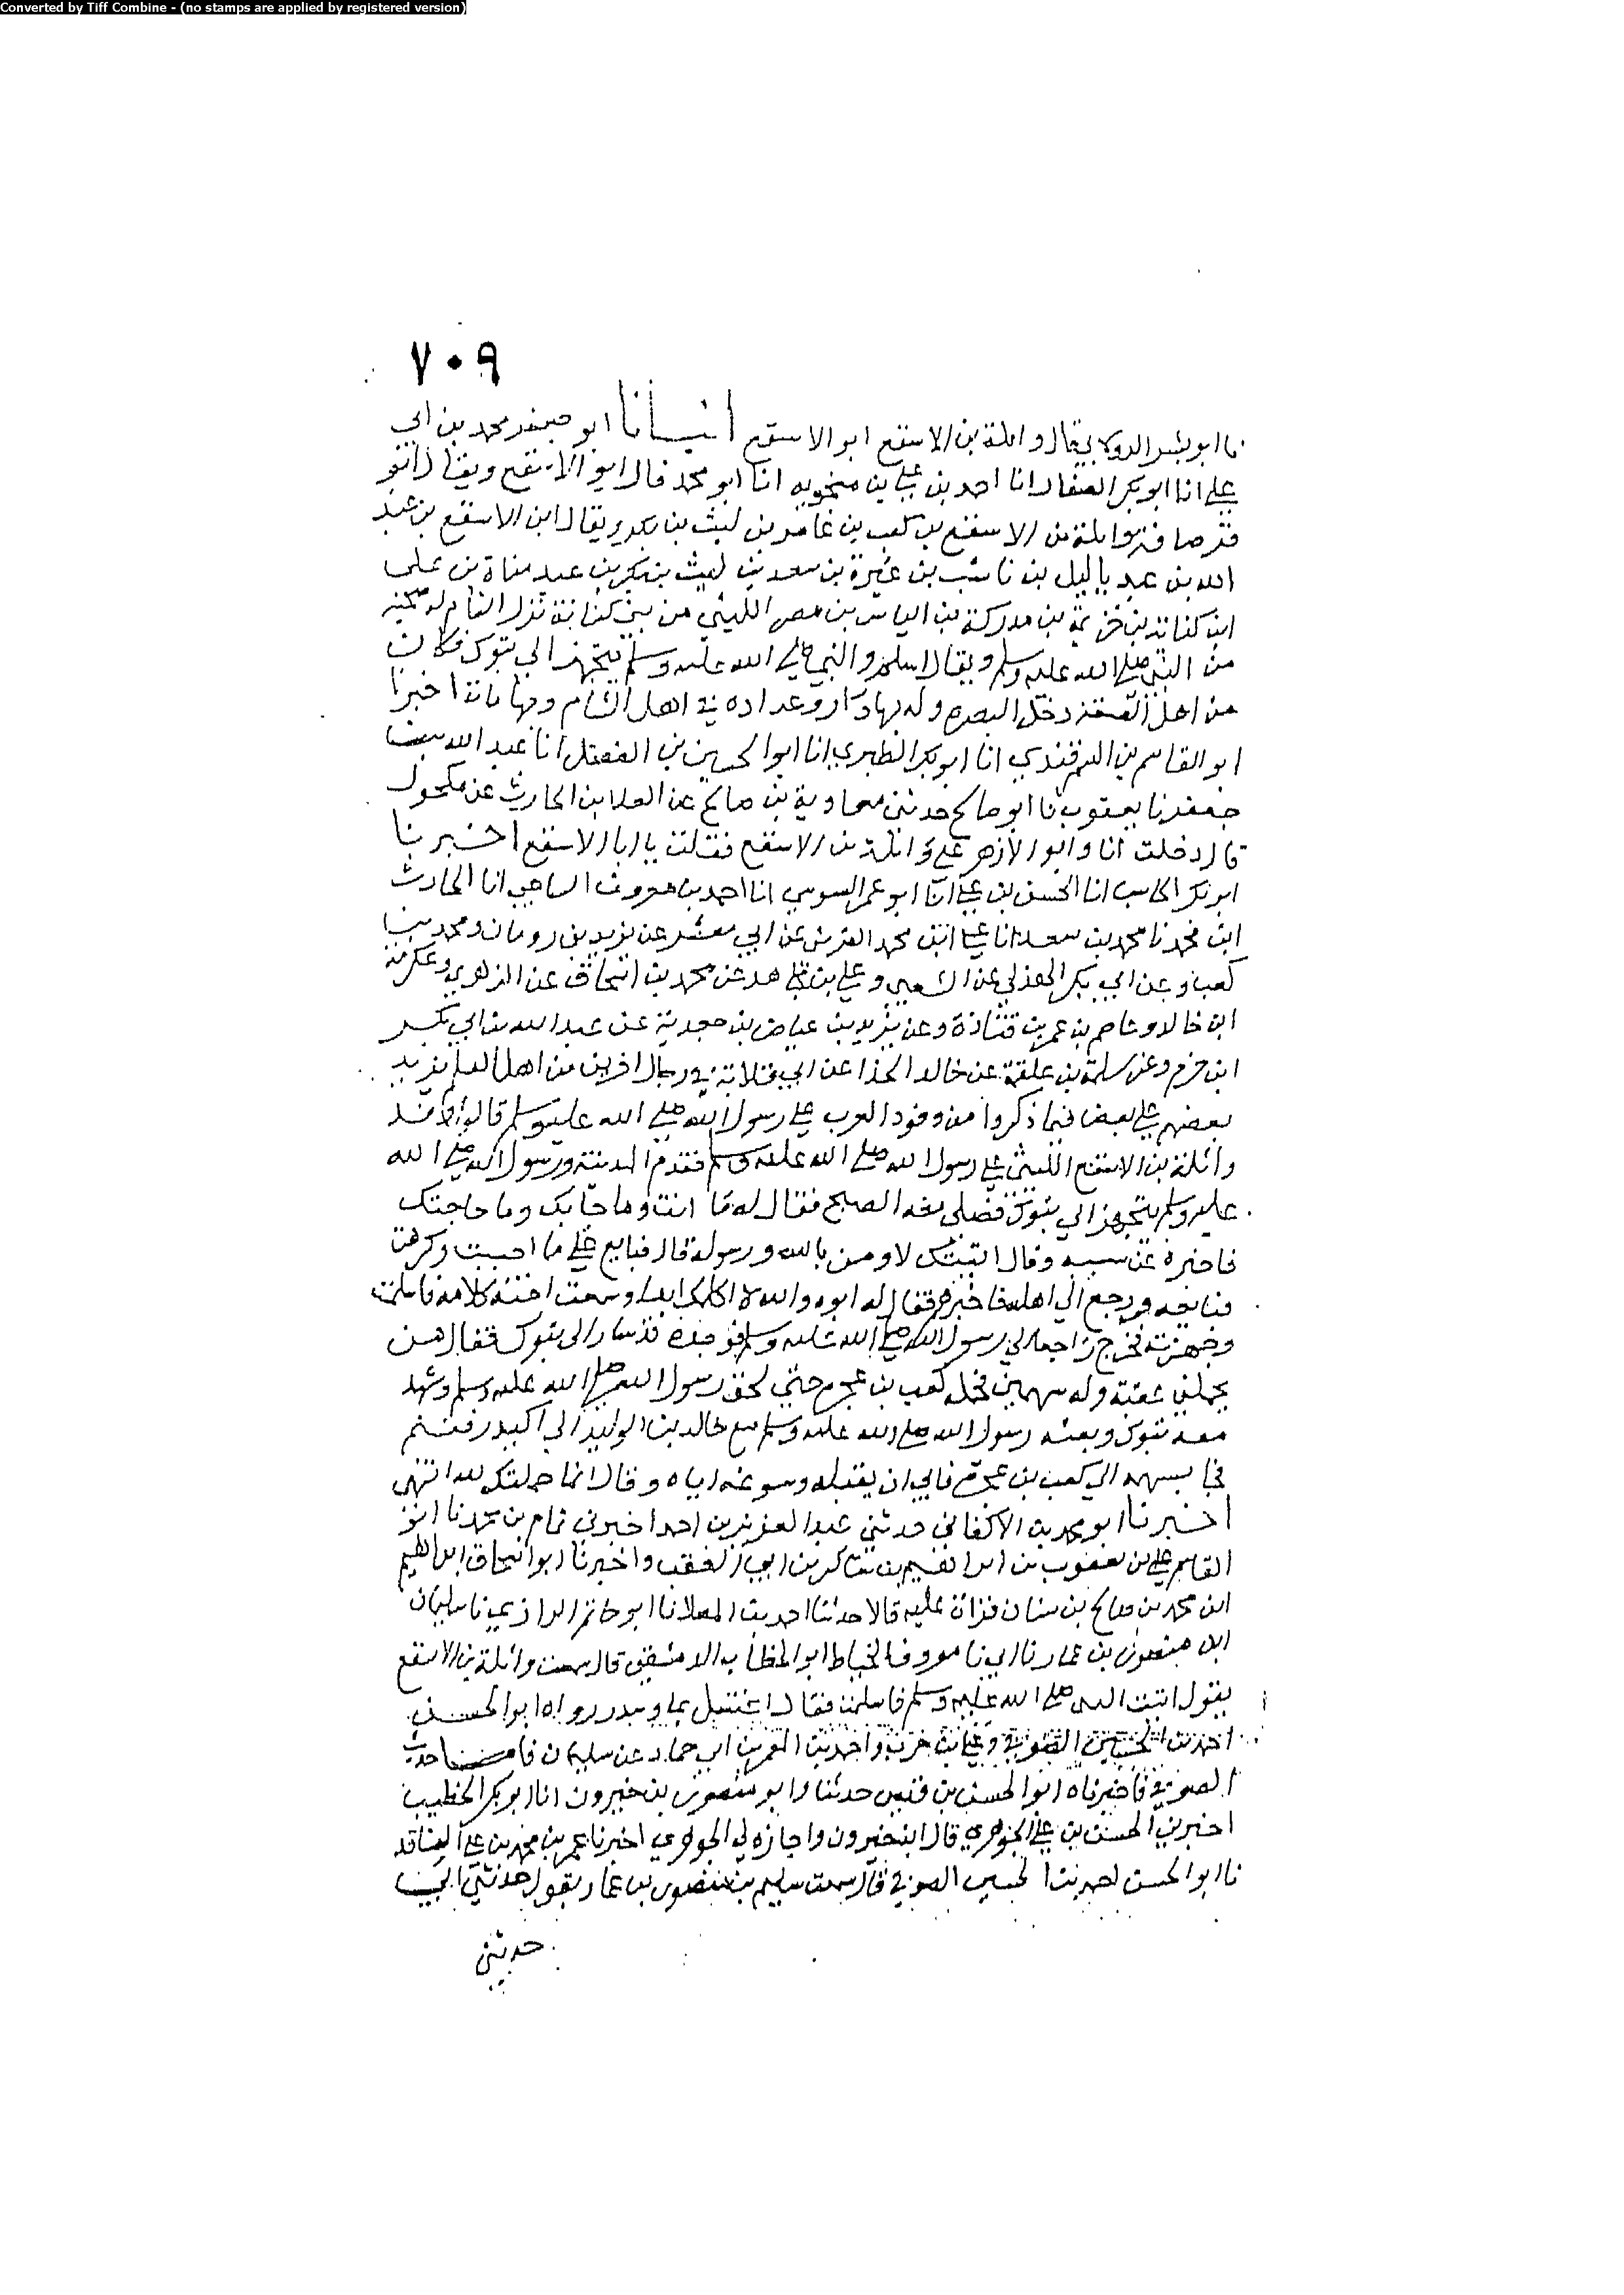 Converted by Tiff Combine - (no stamps are applied by registered version)
٧٠٩
نا ابو بشر الدولابي قال واثلة بن الاسقع ابو الاسقع انبانا ابو جعفر محمد بن ابي
علي انا ابو بكر الصفار انا احمد بن علي بن منجويه انا ابو محمد قال ابو الاسقع ويقال ابو
قرصافة واثلة بن الاسقع بن كعب بن عامر بن ليث بن بكر ويقال ابن الاسقع بن عبد
الله بن عبد ياليل بن ناشب بن غيرة بن سعد بن ليث بن بكر بن عبد مناة بن علي
ابن كنانة بن خزيمة بن مدركة بن الياس بن مضر الليثي من بني كنانة نزل الشام له صحبة
من النبي صلى الله عليه وسلم ويقال اسلم والنبي صلى الله عليه وسلم يتجهز الى تبوك فكان
من اهل الصفة دخل البصره وله بها دار وعداده في اهل الشام وبها مات اخبرنا
ابو القاسم بن السمرقندي انا ابو بكر الطبري انا ابو الحسين بن الفضل انا عبد الله بن
جعفر نا يعقوب نا ابو صالح حدثني معاوية بن صالح عن العلا بن الحارث عن مكحول
قال دخلت انا وابو الازهر على واثلة بن الاسقع فقلت يا ابا الاسقع اخبرنا
ابو بكر الحاسب انا الحسن بن علي انا ابو عمر السوسي انا احمد بن معروف انا الحارث
ابن محمد نا محمد بن سعد انا علي بن محمد القرشي عن ابي معشر عن يزيد بن رومان ومحمد بن
كعب وعن ابي بكر الهذلي عن الشعبي وعلي بن مجاهد عن محمد بن اسحاق عن الزهري وعكرمة
ابن خالد وعاصم بن عمر بن قتادة وعن يزيد بن عياض بن جعدبة عن عبد الله بن ابي بكر
ابن حزم وعن سلمة بن علقمة عن خالد الحذا عن ابي قلابة في رجال اخرين من اهل العلم يزيد
بعضهم على بعض فيما ذكروا من وفود العرب على رسول الله صلى الله عليه وسلم قالوا وفد
واثلة بن الاسقع الليثي على رسول الله صلى الله عليه وسلم فقدم المدينة ورسول الله صلى الله
عليه وسلم يتجهز الى تبوك فصلى معه الصبح فقال له ما انت وما جا بك وما حاجتك
فاخبره عن نسبه وقال اتيتك لاومن بالله ورسوله قال فبايع على ما احببت وكرهت
فبايعه ورجع الى اهله فاخبرهم فقال له ابوه والله لا اكلمك ابدا وسمعت اخته كلامه فاسلمت
وجهزته فخرج راجعا الى رسول الله صلى الله عليه وسلم فوجده قد سار الى تبوك فقال من
يحملني عقبة وله سهمي فحمله كعب بن عجرة حتى لحق رسول الله صلى الله عليه وسلم وشهد
معه تبوك وبعثه رسول الله صلى الله عليه وسلم مع خالد بن الوليد الى اكيدر فغنم
فجا بسهمه الى كعب بن عجرة فابى ان يقبله وسوغه اياه وقال انما حملتك لله انتهى
اخبرنا ابو محمد بن الاكفاني حدثني عبد العزيز بن احمد اخبرني تمام بن محمد نا ابو
القاسم علي بن يعقوب بن ابراهيم بن شاكر بن ابي العقب واخبرنا ابو اسحاق ابراهيم
ابن محمد بن صالح بن سنان قراة عليه قالا حدثنا احمد بن المعلا نا ابو حاتم الرازي نا سليمان
ابن منصور بن عمار نا ابي نا معروف الخياط ابو الخطاب الدمشقي قال سمعت واثلة بن الاسقع
يقول اتيت النبي صلى الله عليه وسلم فاسلمت فقال اغتسل بما وسدر رواه ابو الحسن
احمد بن الحسين الصوفي وعلي بن حرب واحمد بن ابي حماد عن سليمان فاما حديث
الصوفي فاخبرناه ابو الحسن بن قبيس حدثنا وابو منصور بن خيرون انا ابو بكر الخطيب
اخبرني الحسن بن علي الجوهري قال ابن خيرون واجازه لي الجوهري اخبرنا عمر بن محمد بن علي الناقد
نا ابو الحسن احمد بن الحسين الصوفي قال سمعت سليم بن منصور بن عمار يقول حدثني ابي
حدثني